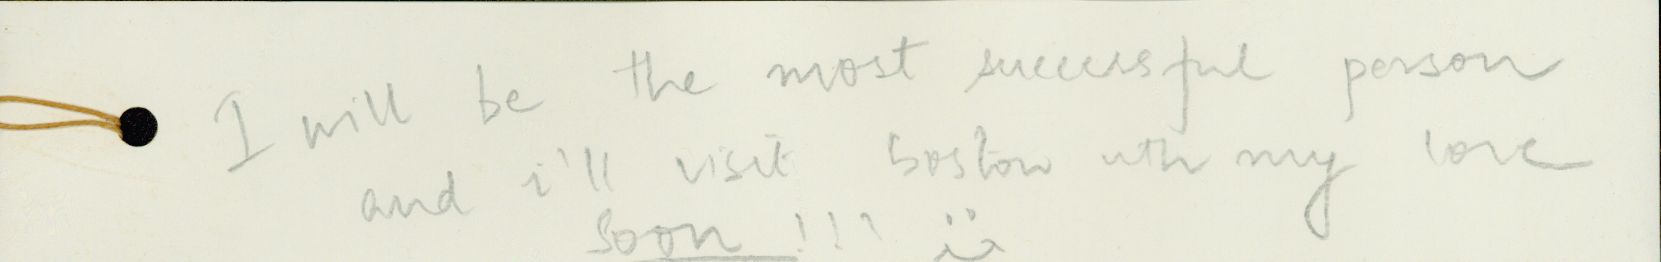 I will be the most successful person
and i'll visit boston with my love
soon !!! :)